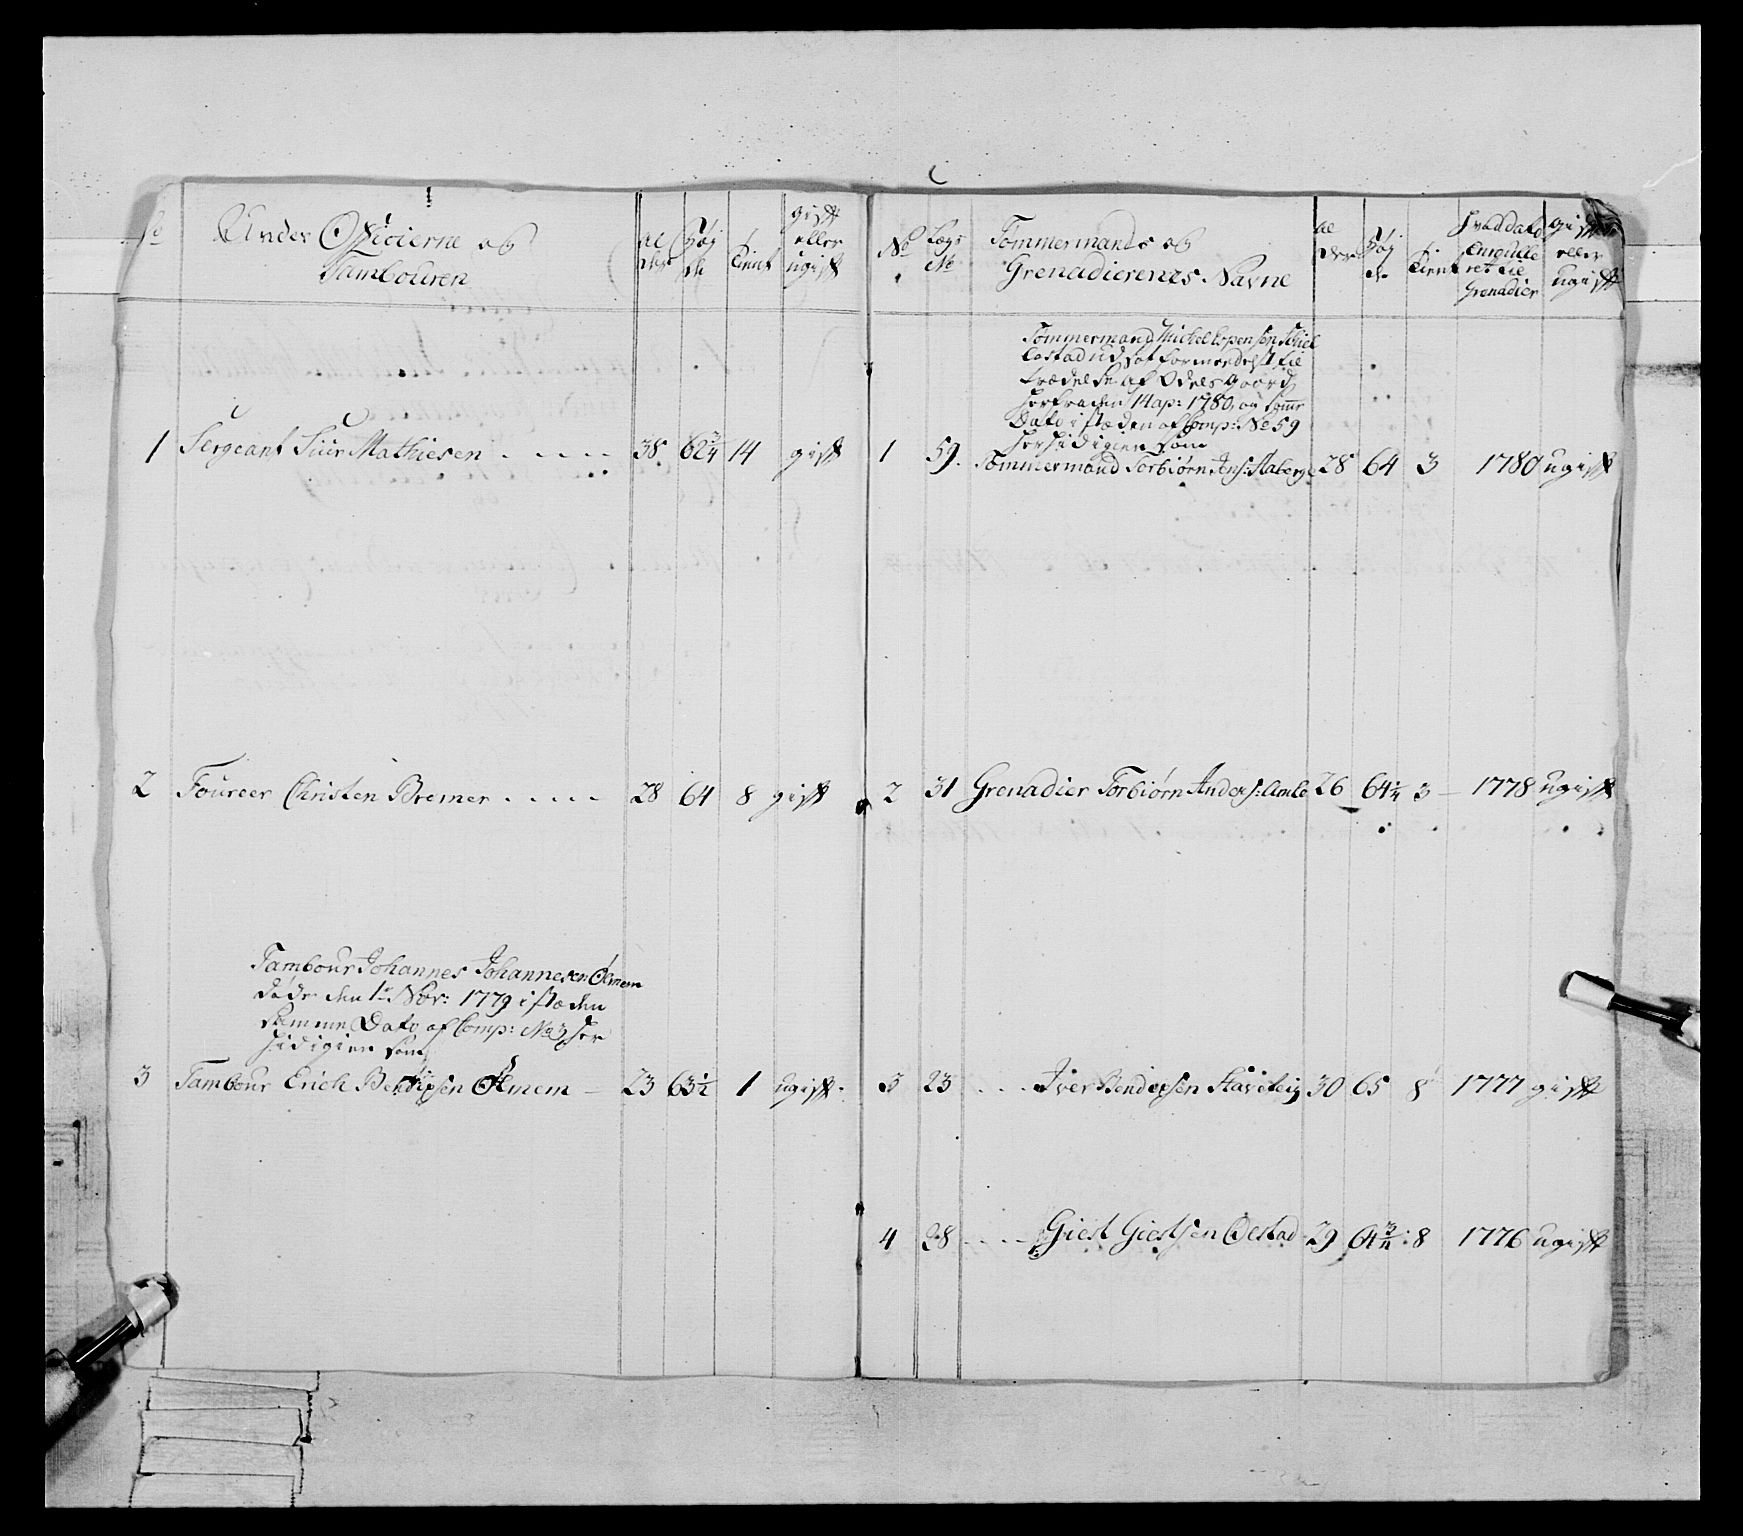 No
Under Officierne og
Tambouren
al
der
Høj
de
tient
gift
eller
ugift
1 Sergeant Siur Mathiesen 38 62 3/4 14 gift
2 Foureer Christen Bremer 28 64 8 gift
Tambour Johannes Johannesen Ølmem
døde den 1te Nov: 1779 i stæden
samme Dato af Comp: No 3 her
hidigien som
3 Tambour Erich Bendixsen Ølmem 23 63 1/2 1 ugift
No
Lægs
No
Tømmermands og
Grenadierenes Navne
al
der
Høj
de
tient
Hvad dato
enroulle
ret til
Grenadier
gift
eller
ugift
Tømmermand Michel Espensen
udsat formedelst til
trædelse af Odels Gaard
herfra den 14 ap: 1780, og samme
Dato i stæden af Comp: No 59
her hidigien som
1 59. Tømmermand Torbiørn Jens: Staberg 28 64 3 1780 ugift
2 31 Grenadier Torbiørn Anders: Amble 26 64 1/4 3 1778 ugift
3 23 Iver Bendixsen 30 65 8 1777 gift
4 28 Giest Giestsen 29 64 3/4 8 1776 ugift